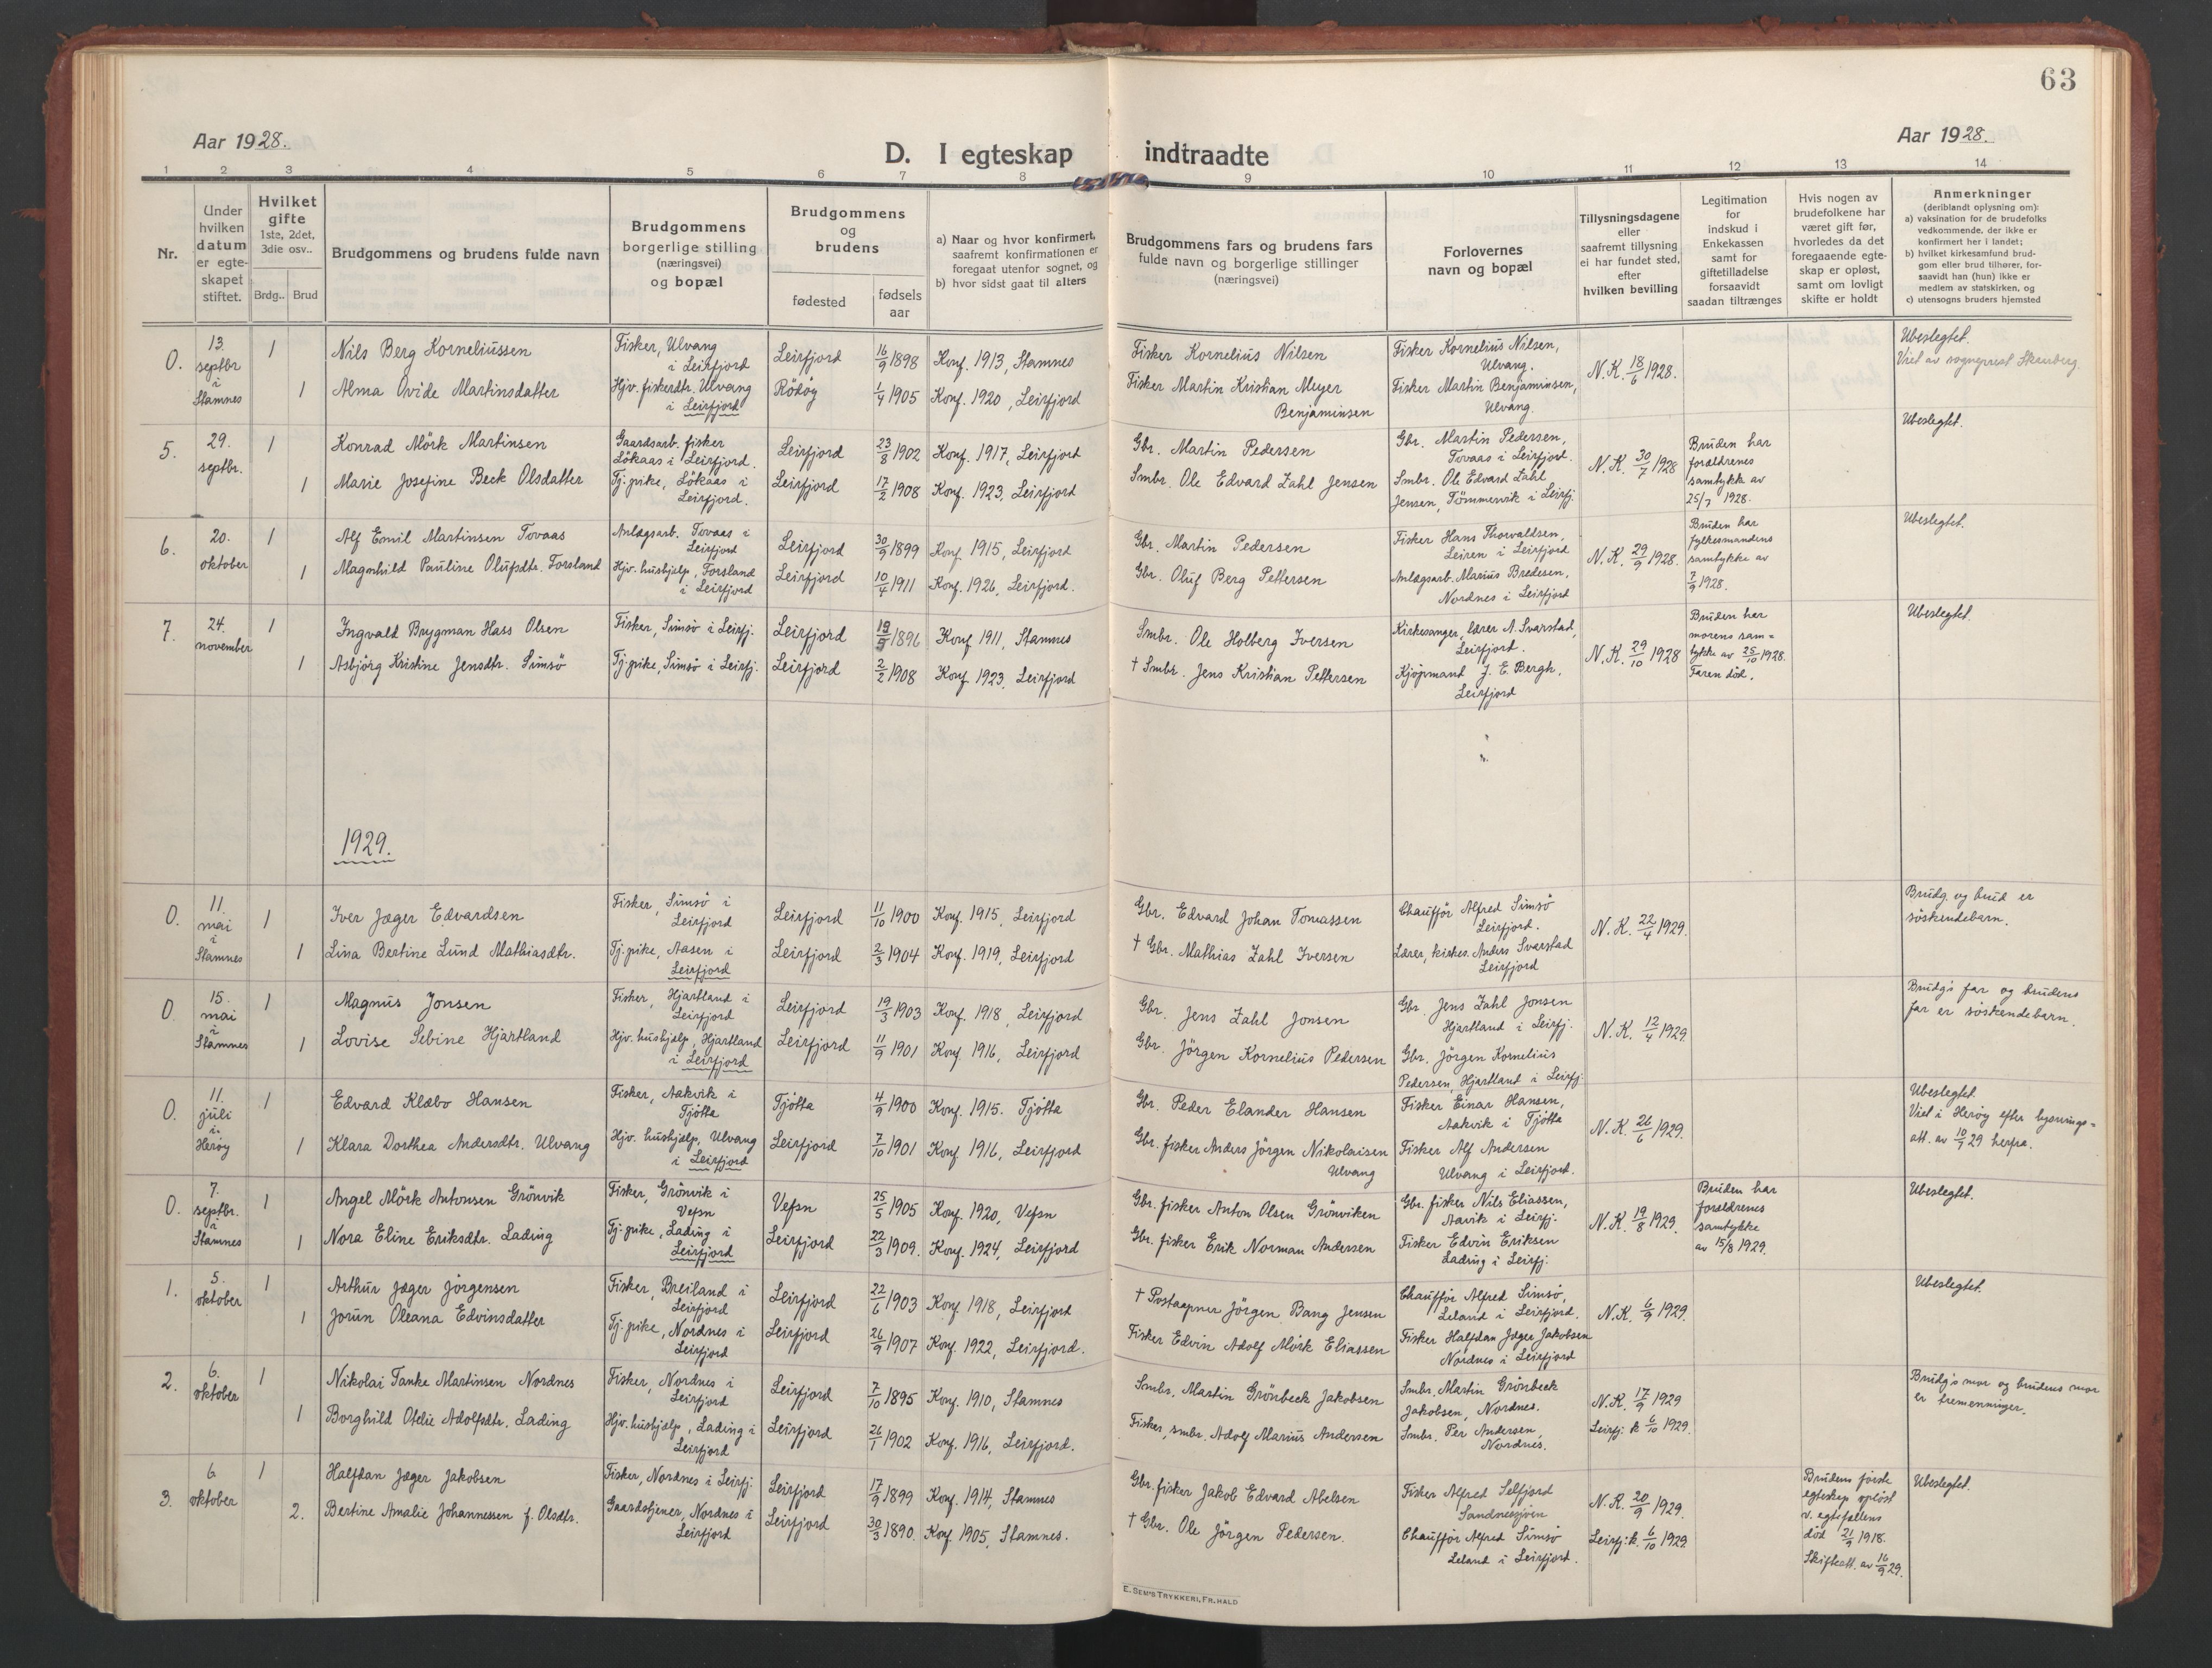 63
Aar 1928.
D. I egteskap indtraadte
Aar 1928.
1 2 3 4 5 6 7 8 9 10 11 12 13 14
Nr.
Under hvilken datum er egteskapet stiftet.
Hvilket gifte
1ste, 2det, 3die osv..
Brdg.. Brud
Brudgommens og brudens fulde navn
Brudgommens borgerlige stilling (næringsvei) og bopæl
Brudgommens og brudens
fødested
fødsels aar
a) Naar og hvor konfirmert, saafremt konfirmationen er foregaat utenfor sognet, og
b) hvor sidst gaat til alters
Brudgommens fars og brudens fars fulde navn og borgerlige stillinger (næringsvei)
Forlovernes navn og bopæl
Tillysningsdagene eller saafremt tillysning ei har fundet sted, efter hvilken bevilling
Legitimation for indskud i Enkekassen samt for giftetilladelse forsaavidt saadan tiltrænges
Hvis nogen av brudefolkene har været gift før, hvorledes da det foregaaende egteskap er opløst, samt om lovligt skifte er holdt
Anmerkninger
(deriblandt oplysning om):
a) vaksination for de brudefolks vedkommende, der ikke er konfirmert her i landet;
b) hvilket kirkesamfund brudgom eller brud tilhører, forsaavidt han (hun) ikke er medlem av statskirken, og
c) utensogns bruders hjemsted
0. 13. septbr i Stamnes
1 Nils Berg Korneliussen Fisker, Ulvang i Leirfjord Leirfjord 16/9 1898 Konf. 1913, Stamnes Fisker Kornelius Nilsen Fisker Kornelius Nilsen, Ulvang.
1 Alma Ovide Martinsdatter Hjv. fiskerdtr. Ulvang i Leirfjord Rödöy 1/4 1905 Konf. 1920, Leirfjord Fisker Martin Kristian Meyer Benjaminsen Fisker Martin Benjaminsen, Ulvang.
N.K. 18/6 1928. Ubeslegtet. Viet av sogneprest Skarberg.
5. 29. septbr.
1 Konrad Mörk Martinsen Gaardsarb. fisker Lökaas i Leirfjord. Leirfjord 23/8 1902 Konf. 1917, Leirfjord Gbr. Martin Pedersen Gbr. Martin Pedersen, Tovaas i Leirfjord.
1 Marie Josefine Beck Olsdatter Tj. pike, Lökaas i Leirfjord. Leirfjord 17/2 1908 Konf. 1923, Leirfjord Smbr. Ole Edvard Zahl Jensen Smbr. Ole Edvard Zahl Jensen, Tömmervik i Leirfj.
N.K. 30/7 1928 Bruden har forældrenes samtykke av 25/7 1928. Ubeslegtet.
6. 20. oktober
1 Alf Emil Martinsen Tovaas Anlægsarb. Tovaas i Leirfjord Leirfjord 30/9 1899 Konf. 1915, Leirfjord Gbr. Martin Pedersen Fisker Hans Thorvaldsen, Leiren i Leirfjord
1 Magnhild Pauline Olufsdtr. Forsland Hjv. hushjælp, Forsland i Leirfjord Leirfjord 10/4 1911 Konf. 1926, Leirfjord. Gbr. Oluf Berg Pettersen Anlægsarb. Marius Bredesen, Nordnes i Leirfjord
N.K. 29/9 1928. Bruden har fylkesmandens samtykke av 7/9 1928. Ubeslegtet.
7. 24. november
1 Ingvald Brygman Hass Olsen Fisker, Simsö i Leirfj. Leirfjord 19/9 1896 Konf. 1911, Stamnes Smbr. Ole Holberg Iversen Kirkesanger, lærer A. Svarstad, Leirfjord.
1 Asbjörg Kristine Jensdtr. Simsö Tj. pike, Simsö i Leirfj. Leirfjord 2/2 1908 Konf. 1923, Leirfjord † Smbr. Jens Kristian Pettersen Kjöpmand J. E. Bergh, Leirfjord
N.K. 29/10 1928 Bruden har morens samtykke av 25/10 1928. Faren död. Ubeslegtet.
1929.
0. 11. mai i Stamnes
1 Iver Jæger Edvardsen Fisker, Simsö i Leirfjord Leirfjord 11/10 1900 Konf. 1915, Leirfjord Gbr. Edvard Johan Tomassen Chaufför Alfred Simsö Leirfjord.
1 Lina Bertine Lund Mathiasdtr. Tj. pike, Aasen i Leirfjord Leirfjord 2/3 1904 Konf. 1919, Leirfjord † Gbr. Mathias Zahl Iversen Lærer, kirkes. Anders Svarstad Leirfjord
N.K. 22/4 1929. Brudg. og brud er söskendebarn.
0. 15. mai i Stamnes
1 Magnus Jonsen Fisker, Hjartland i Leirfjord Leirfjord 19/3 1903 Konf. 1918, Leirfjord Gbr. Jens Zahl Jonsen Gbr. Jens Zahl Jonsen Hjartland i Leirfj.
1 Lovise Sebine Hjartland Hjv. hushjælp, Hjartland i Leirfjord Leirfjord 11/9 1901 Konf. 1916, Leirfjord Gbr. Jörgen Kornelius Pedersen Gbr. Jörgen Kornelius Pedersen, Hjartland i Leirfj.
N.K. 12/4 1929. Brudg's far og brudens far er söskendebarn.
0. 11. juli i Heröy
1 Edvard Klæbo Hansen Fisker, Aakvik i Tjötta Tjötta 4/9 1900 Konf. 1915. Tjötta Gbr. Peder Elander Hansen Fisker Einar Hansen, Aakvik i Tjötta
1 Klara Dorthea Andersdtr. Ulvang Hjv. hushjælp, Ulvang i Leirfjord Leirfjord 7/10 1901 Konf. 1916, Leirfjord Gbr. fisker Anders Jörgen Nikolaisen Ulvang Fisker Alf Andersen Ulvang i Leirfjord.
N.K. 26/6 1929. Ubeslegtet. Viet i Heröy efter lysningsatt. av 10/7 29 herfra.
0. 7. septbr. i Stamnes
1 Angel Mörk Antonsen Grönvik Fisker, Grönvik i Vefsn Vefsn 25/5 1905 Konf. 1920, Vefsn Gbr. fisker Anton Olsen Grönviken Gbr. fisker Nils Eliassen, Aavik i Leirfj.
1 Nora Eline Eriksdtr. Lading Tj. pike, Lading i Leirfjord Leirfjord 22/3 1909. Konf. 1924, Leirfjord Gbr. fisker Erik Norman Andersen Fisker Edvin Eriksen Lading i Leirfj.
N.K. 19/8 1929. Bruden har forældrenes samtykke av 15/8 1929. Ubeslegtet.
1. 5. oktober
1 Arthur Jæger Jörgensen Fisker, Breiland i Leirfjord Leirfjord 22/6 1903 Konf. 1918, Leirfjord † Postaapner Jörgen Bang Jensen Chaufför Alfred Simsö, Leland i Leirfjord.
1 Jorun Oleana Edvinsdatter Tj. pike, Nordnes i Leirfjord Leirfjord 26/9 1907 Konf. 1922, Leirfjord. Fisker Edvin Adolf Mörk Eliassen Fisker Halfdan Jæger Jakobsen Nordnes i Leirfjord
N.K. 6/9 1929. Ubeslegtet.
2. 6. oktober
1 Nikolai Tanke Martinsen Nordnes Fisker, Nordnes i Leirfjord Leirfjord 7/10 1895 Konf. 1910, Stamnes Smbr. Martin Grönbeck Jakobsen Smbr. Martin Grönbeck Jakobsen, Nordnes.
1 Borghild Otelie Adolfsdtr. Lading Hjv. hushjælp, Lading i Leirfjord Leirfjord 26/1 1902 Konf. 1916, Leirfjord. Fisker, smbr. Adolf Marius Andersen Smbr. Per Andersen, Nordnes.
N.K. 17/9 1929 Leirfj. k 6/10 1929. Brudg's mor og brudens mor er tremenninger.
3. 6 oktober
1 Halfdan Jæger Jakobsen Fisker, Nordnes i Leirfj. Leirfjord 17/9 1899 Konf. 1914, Stamnes Gbr. fisker Jakob Edvard Abelsen Fisker Alfred Selfjord Sandnessjöen
2. Bertine Amalie Johannessen f. Olsdtr. Gaardstjener, Nordnes i Leirfjord Leirfjord 30/3 1890. Konf. 1905, Stamnes. † Gbr. Ole Jörgen Pedersen. Chaufför Alfred Simsö Leland i Leirfjord.
N.K. 20/9 1929. Leirfj. k. 6/10 1929. Brudens förste egteskap oplöst v. egtefællens död 21/9 1918. Skifteatt. av 16/9 29. Ubeslegtet.
E. SEM'S TRYKKERI, FR.HALD